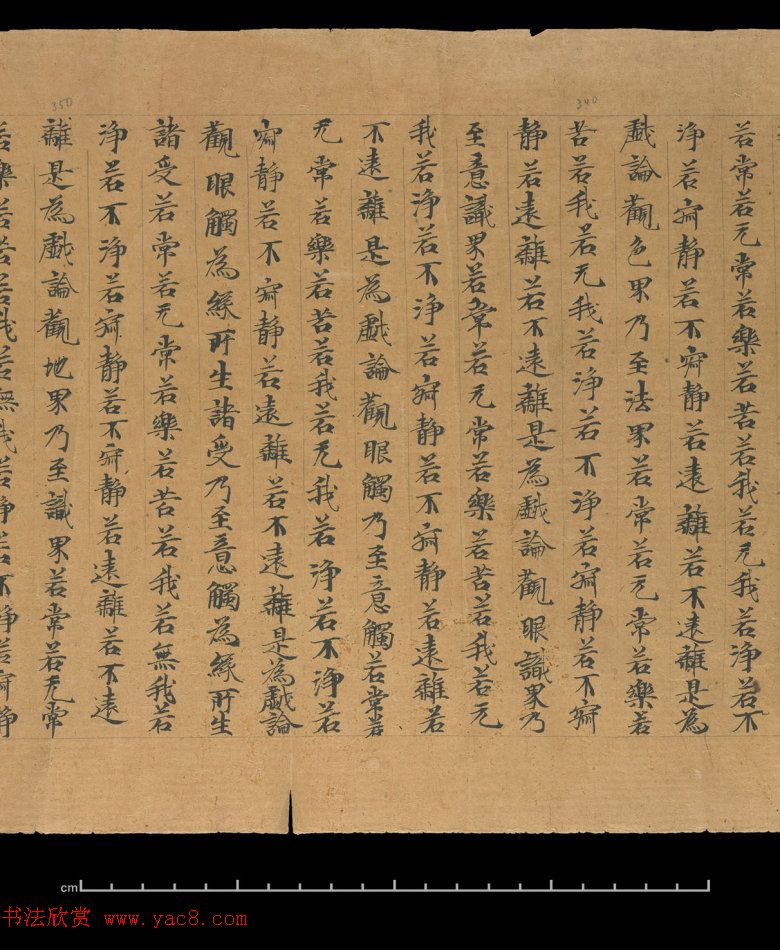 若常若无常若樂若苦若我若无我若淨若不
淨若寂静若不寂静若遠離若不遠離是為
戲論觀色界乃至法界若常若无常若樂若
苦若我若无我若淨若不淨若寂静若不寂
静若遠離若不遠離是為戲論觀眼識界乃
至意識界若常若无常若樂若苦若我若无
我若淨若不淨若寂静若不寂静若遠離若
不遠離是為戲論觀眼觸乃至意觸若常若
无常若樂若苦若我若无我若淨若不淨若
寂静若不寂静若遠離若不遠離是為戲論
觀眼觸為緣所生諸受乃至意觸為緣所生
諸受若常若无常若樂若苦若我若無我若
淨若不淨若寂静若不寂静若遠離若不遠
離是為戲論觀地界乃至識界若常若无常
若樂若苦若我若無我若淨若不淨若寂静
340
350
cm
书法欣赏 www.yac8.com